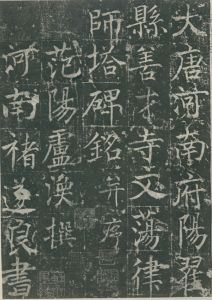 大唐河南府陽翟
縣善才寺文蕩律
師塔碑銘并序
范陽盧渙撰
河南褚遂良書